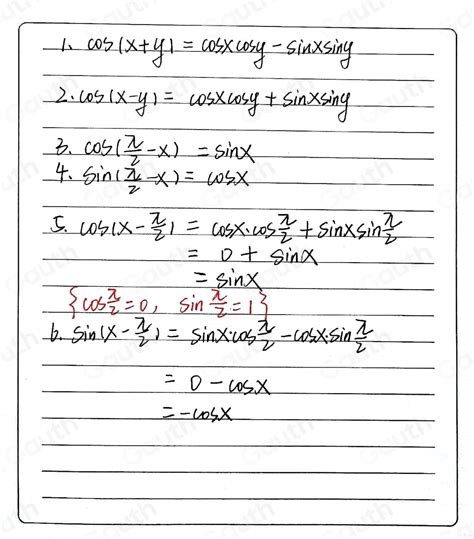 1. cos(x+y) = cosxcosy - sinxsiny
2. cos(x-y) = cosxcosy + sinxsiny
3. cos(π/2 - x) = sinx
4. sin(π/2 - x) = cosx
5. cos(x - π/2) = cosx·cos π/2 + sinxsin π/2
= 0 + sinx
= sinx
{cos π/2 = 0, sin π/2 = 1}
6. sin(x - π/2) = sinx·cos π/2 - cosx·sin π/2
= 0 - cosx
= -cosx
Gauth